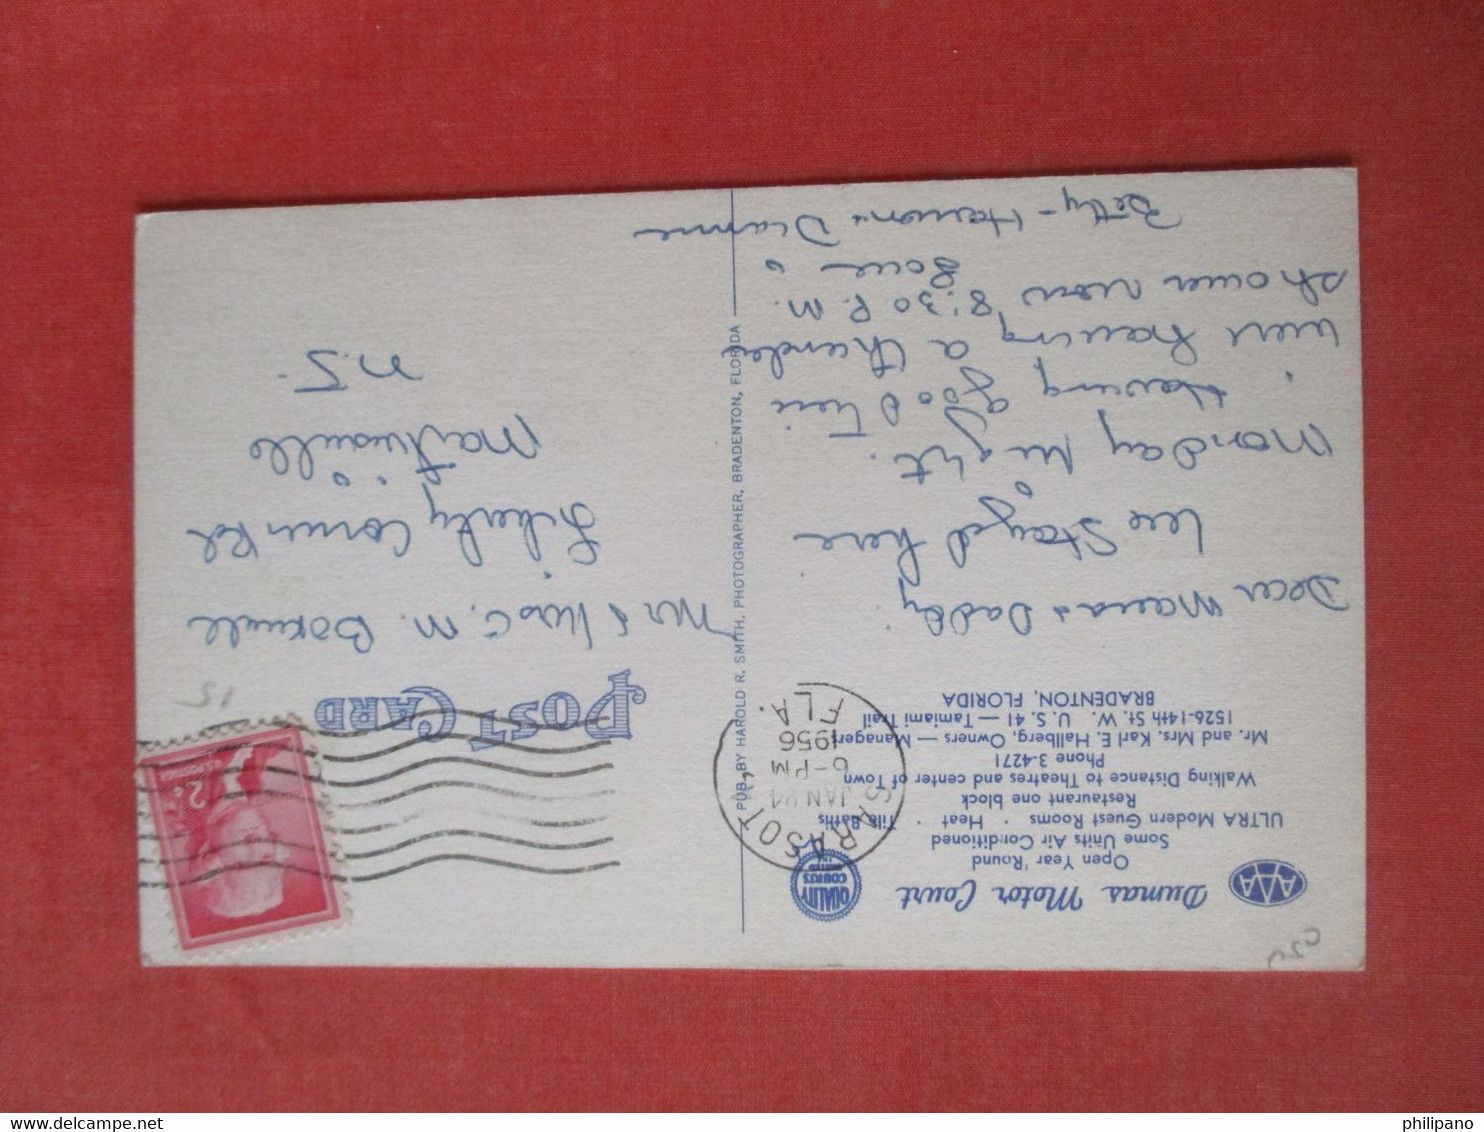 AAA
Dumas Motor Court
QUALITY
COURTS
UNITED
INC
Open Year 'Round
Some Units Air Conditioned
ULTRA Modern Guest Rooms · Heat · Tile Baths
Restaurant one block
Walking Distance to Theatres and center of Town
Phone 3-4271
Mr. and Mrs. Karl E. Hallberg, Owners — Managers
1526-14th St. W. U. S. 41 — Tamiami Trail
BRADENTON, FLORIDA
Dear Mama & Daddy
We Stayed here
Monday Night.
Having good time
were having a thunder
shower now 8:30 P.M.
Love
Betty - Harmon & Dianne
PUB. BY HAROLD R. SMITH, PHOTOGRAPHER, BRADENTON, FLORIDA
SARASOTA,
JAN 24
6-PM
1956
FLA.
2¢
U.S. POSTAGE
POST CARD
15
Mr & Mrs C. M.
Liberty Corner Rd
Martinsville
N.J.
philipano